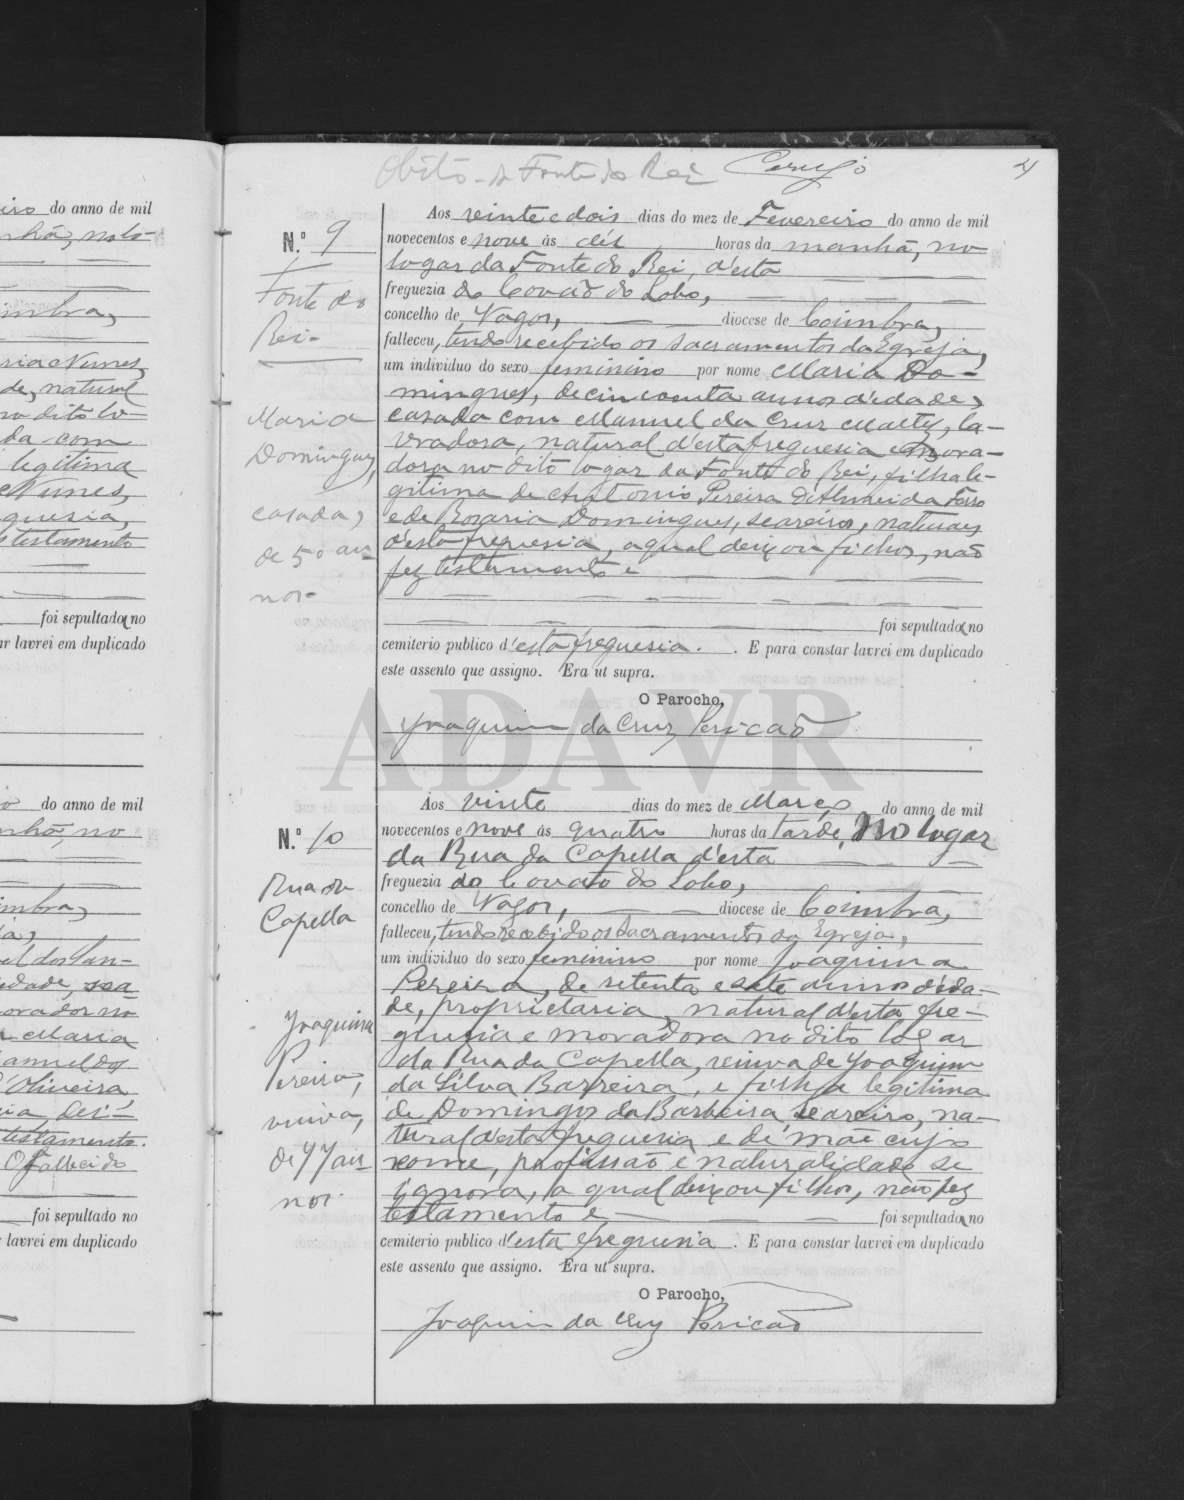 Obito - a Fonte do Rei
4
iro do anno de mil
nhã, no lo-
imbra,
ria Nunes
de, natural
no dito lo-
da com
legitima
Nunes,
guesia,
testamento
foi sepultado no
ar lavrei em duplicado
do anno de mil
nhã, no
imbra,
el dos San-
idade,
orador no
Maria
anuel da
d'Oliveira,
testamento.
O fallecido
foi sepultado no
lavrei em duplicado
N.º 9
Fonte do
Rei-
Maria
Domingues,
casada,
de 50 an-
nos-
Aos vinte e dois dias do mez de Fevereiro do anno de mil
novecentos e nove ás déz horas da manhã, no
logar da Fonte do Rei, d'esta
freguezia do Covão do Lobo,
concelho de Vagos, diocese de Coimbra,
falleceu, tendo recebido os sacramentos da Egreja,
um individuo do sexo feminino por nome Maria Do-
mingues, de cincoenta annos d'edade,
casada com Manuel da Cruz, la-
vradora, natural d'esta freguesia e mora-
dora no dito logar da Fonte do Rei, filha le-
gitima de Antonio Pereira d'Almeida
e de Rosaria Domingues, seareiros, naturaes
d'esta freguesia, a qual deixou filhos, não
fez testamento e
foi sepultada no
cemiterio publico d'esta freguesia. E para constar lavrei em duplicado
este assento que assigno. Era ut supra.
O Parocho,
Joaquim da Cruz Pericão
ADAVR
N.º 10
Rua da
Capella
Joaquina
Pereira,
viuva,
de 77 an-
nos.
Aos vinte dias do mez de Março do anno de mil
novecentos e nove ás quatro horas da tarde, no logar
da Rua da Capella d'esta
freguezia do Covão do Lobo,
concelho de Vagos, diocese de Coimbra,
falleceu, tendo recebido os sacramentos da Egreja,
um individuo do sexo feminino por nome Joaquina
Pereira, de setenta e sete annos d'eda-
de, proprietaria, natural d'esta fre-
guesia e moradora no dito logar
da Rua da Capella, viuva de Joaquim
da Silva Barreira, e filha legitima
de Domingos da Barbeira seareiro, na-
tural d'esta freguesia e de mãe cujo
nome, profissão e naturalidade se
ignora, a qual deixou filhos, não fez
testamento e foi sepultada no
cemiterio publico d'esta freguesia. E para constar lavrei em duplicado
este assento que assigno. Era ut supra.
O Parocho,
Joaquim da Cruz Pericão